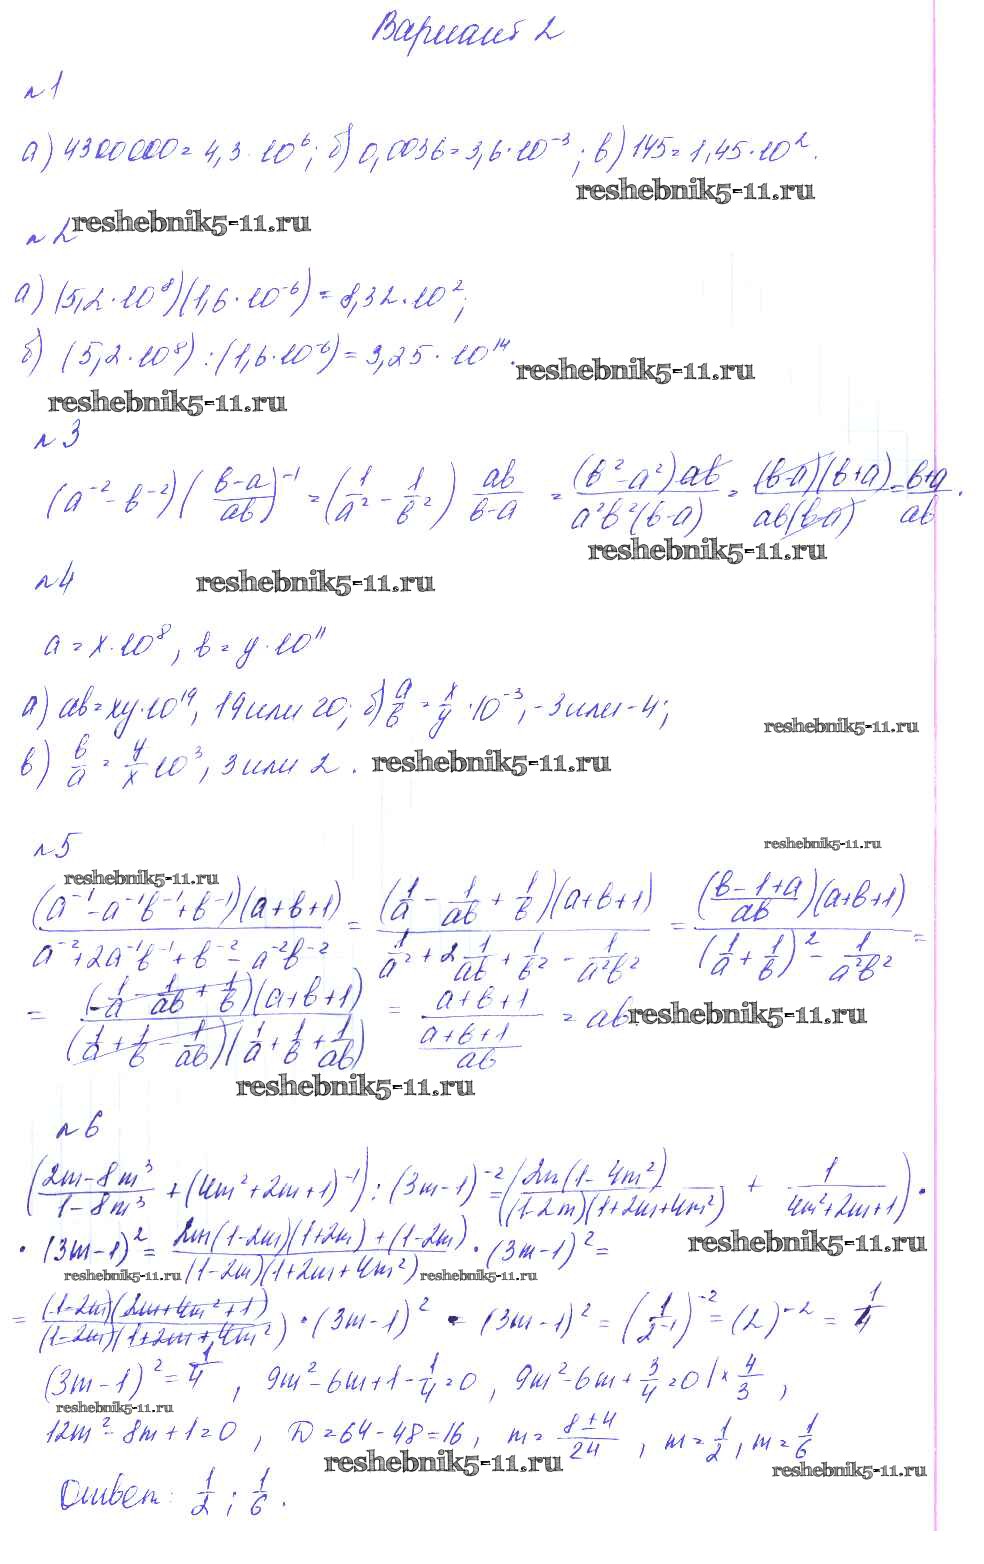 Вариант 2
№1
а) 4300000 = 4,3 · 10^6; б) 0,0036 = 3,6 · 10^-3; в) 145 = 1,45 · 10^2.
reshebnik5-11.ru
reshebnik5-11.ru
№2
а) (5,2 · 10^8)(1,6 · 10^-6) = 8,32 · 10^2;
б) (5,2 · 10^8) : (1,6 · 10^-6) = 3,25 · 10^14.
reshebnik5-11.ru
reshebnik5-11.ru
№3
(a^-2 - b^-2)((b-a)/(ab))^-1 = (1/a^2 - 1/b^2) ab/(b-a) = (b^2-a^2)ab/(a^2b^2(b-a)) = (b-a)(b+a)/(ab(b-a)) = (b+a)/(ab).
reshebnik5-11.ru
№4 reshebnik5-11.ru
a = x · 10^8, b = y · 10^11
а) ab = xy · 10^19, 19 или 20; б) a/b = x/y · 10^-3, -3 или -4;
reshebnik5-11.ru
в) b/a = y/x 10^3, 3 или 2. reshebnik5-11.ru
№5
reshebnik5-11.ru
reshebnik5-11.ru
(a^-1 - a^-1b^-1 + b^-1)(a+b+1)/(a^-2 + 2a^-1b^-1 + b^-2 - a^-2b^-2) = (1/a - 1/(ab) + 1/b)(a+b+1)/(1/a^2 + 2 1/(ab) + 1/b^2 - 1/(a^2b^2)) = ((b-1+a)/(ab))(a+b+1)/((1/a + 1/b)^2 - 1/(a^2b^2)) =
= (1/a - 1/(ab) + 1/b)(a+b+1)/((1/a + 1/b - 1/(ab))(1/a + 1/b + 1/(ab))) = (a+b+1)/((a+b+1)/(ab)) = ab
reshebnik5-11.ru
reshebnik5-11.ru
№6
((2m-8m^3)/(1-8m^3) + (4m^2+2m+1)^-1) : (3m-1)^-2 = (2m(1-4m^2)/((1-2m)(1+2m+4m^2)) + 1/(4m^2+2m+1)) ·
· (3m-1)^2 = (2m(1-2m)(1+2m)+(1-2m))/((1-2m)(1+2m+4m^2)) · (3m-1)^2 =
reshebnik5-11.ru
reshebnik5-11.ru
reshebnik5-11.ru
= (1-2m)(2m+4m^2+1)/((1-2m)(1+2m+4m^2)) · (3m-1)^2 = (3m-1)^2 = (1/2^-1)^-2 = (2)^-2 = 1/4
(3m-1)^2 = 1/4, 9m^2-6m+1-1/4=0, 9m^2-6m+3/4=0 | × 4/3,
reshebnik5-11.ru
12m^2-8m+1=0, D=64-48=16, m=(8±4)/24, m=1/2, m=1/6
reshebnik5-11.ru
reshebnik5-11.ru
Ответ: 1/2; 1/6.